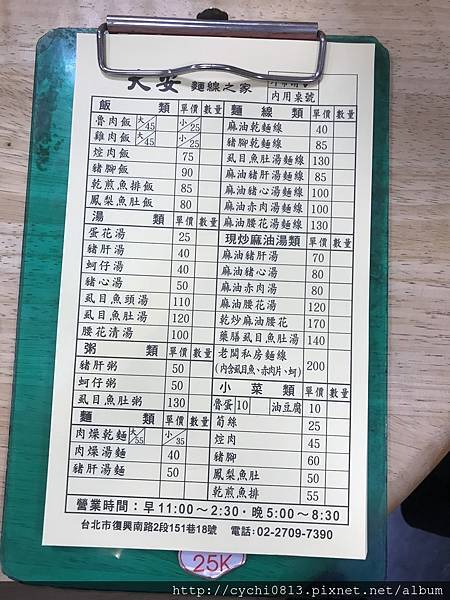 大安 麵線之家
內用桌號
飯類 單價 數量
魯肉飯 大/45 小/25
雞肉飯 大/45 小/25
焢肉飯 75
豬腳飯 90
乾煎魚排飯 85
鳳梨魚肚飯 80
湯類 單價 數量
蛋花湯 25
豬肝湯 40
蚵仔湯 40
豬心湯 50
虱目魚頭湯 110
虱目魚肚湯 120
腰花清湯 100
粥類 單價 數量
豬肝粥 50
蚵仔粥 50
虱目魚肚粥 130
麵類 單價 數量
肉燥乾麵 大/55 小/35
肉燥湯麵 40
豬肝湯麵 50
麵線類 單價 數量
麻油乾麵線 40
豬腳乾麵線 85
虱目魚肚湯麵線 130
麻油豬肝湯麵線 85
麻油豬心湯麵線 100
麻油赤肉湯麵線 100
麻油腰花湯麵線 130
現炒麻油湯類 單價 數量
麻油豬肝湯 70
麻油豬心湯 80
麻油赤肉湯 80
麻油腰花湯 120
乾炒麻油腰花 170
藥膳虱目魚肚湯 140
老闆私房麵線 200
(內含虱目魚、赤肉片、蚵)
小菜類 單價 數量
魯蛋 10 油豆腐 10
筍絲 25
焢肉 45
豬腳 60
鳳梨魚肚 50
乾煎魚排 55
營業時間：早11:00～2:30・晚5:00～8:30
台北市復興南路2段151巷18號 電話：02-2709-7390
25K
http://cychi0813.pixnet.net/album